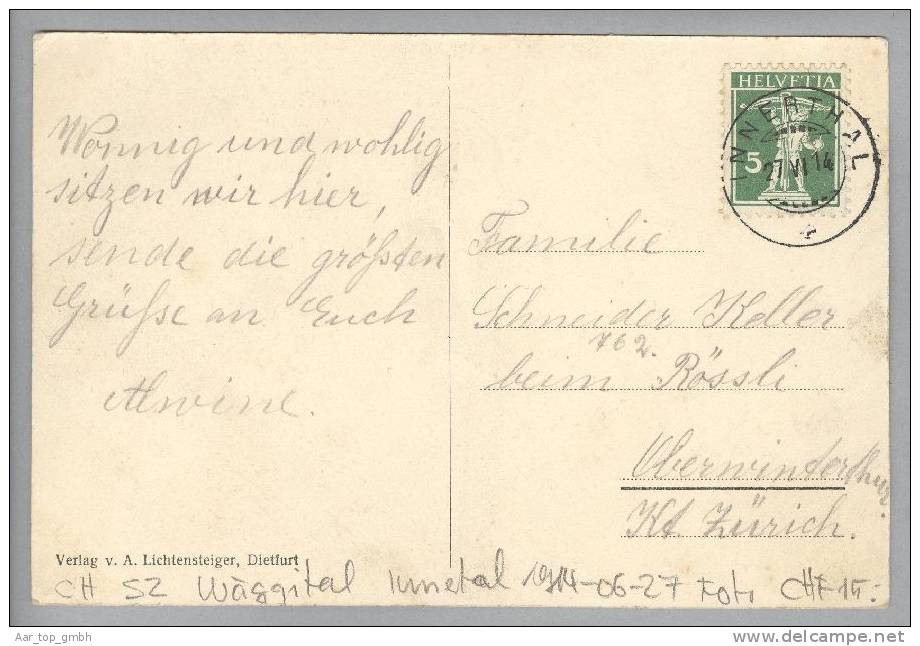 Wonnig und wohlig
sitzen wir hier,
sende die größten
Grüße an Euch
Alwine.
HELVETIA
5
INNERTHAL
27 VI 14
Familie
Schneider Keller
762.
beim Rössli
Oberwinterthur.
Kt. Zürich.
Verlag v. A. Lichtensteiger, Dietfurt
CH SZ Wäggital Innetal 1914-06-27 Foto CHF 15.-
Aar_top_gmbh
www.delcampe.net